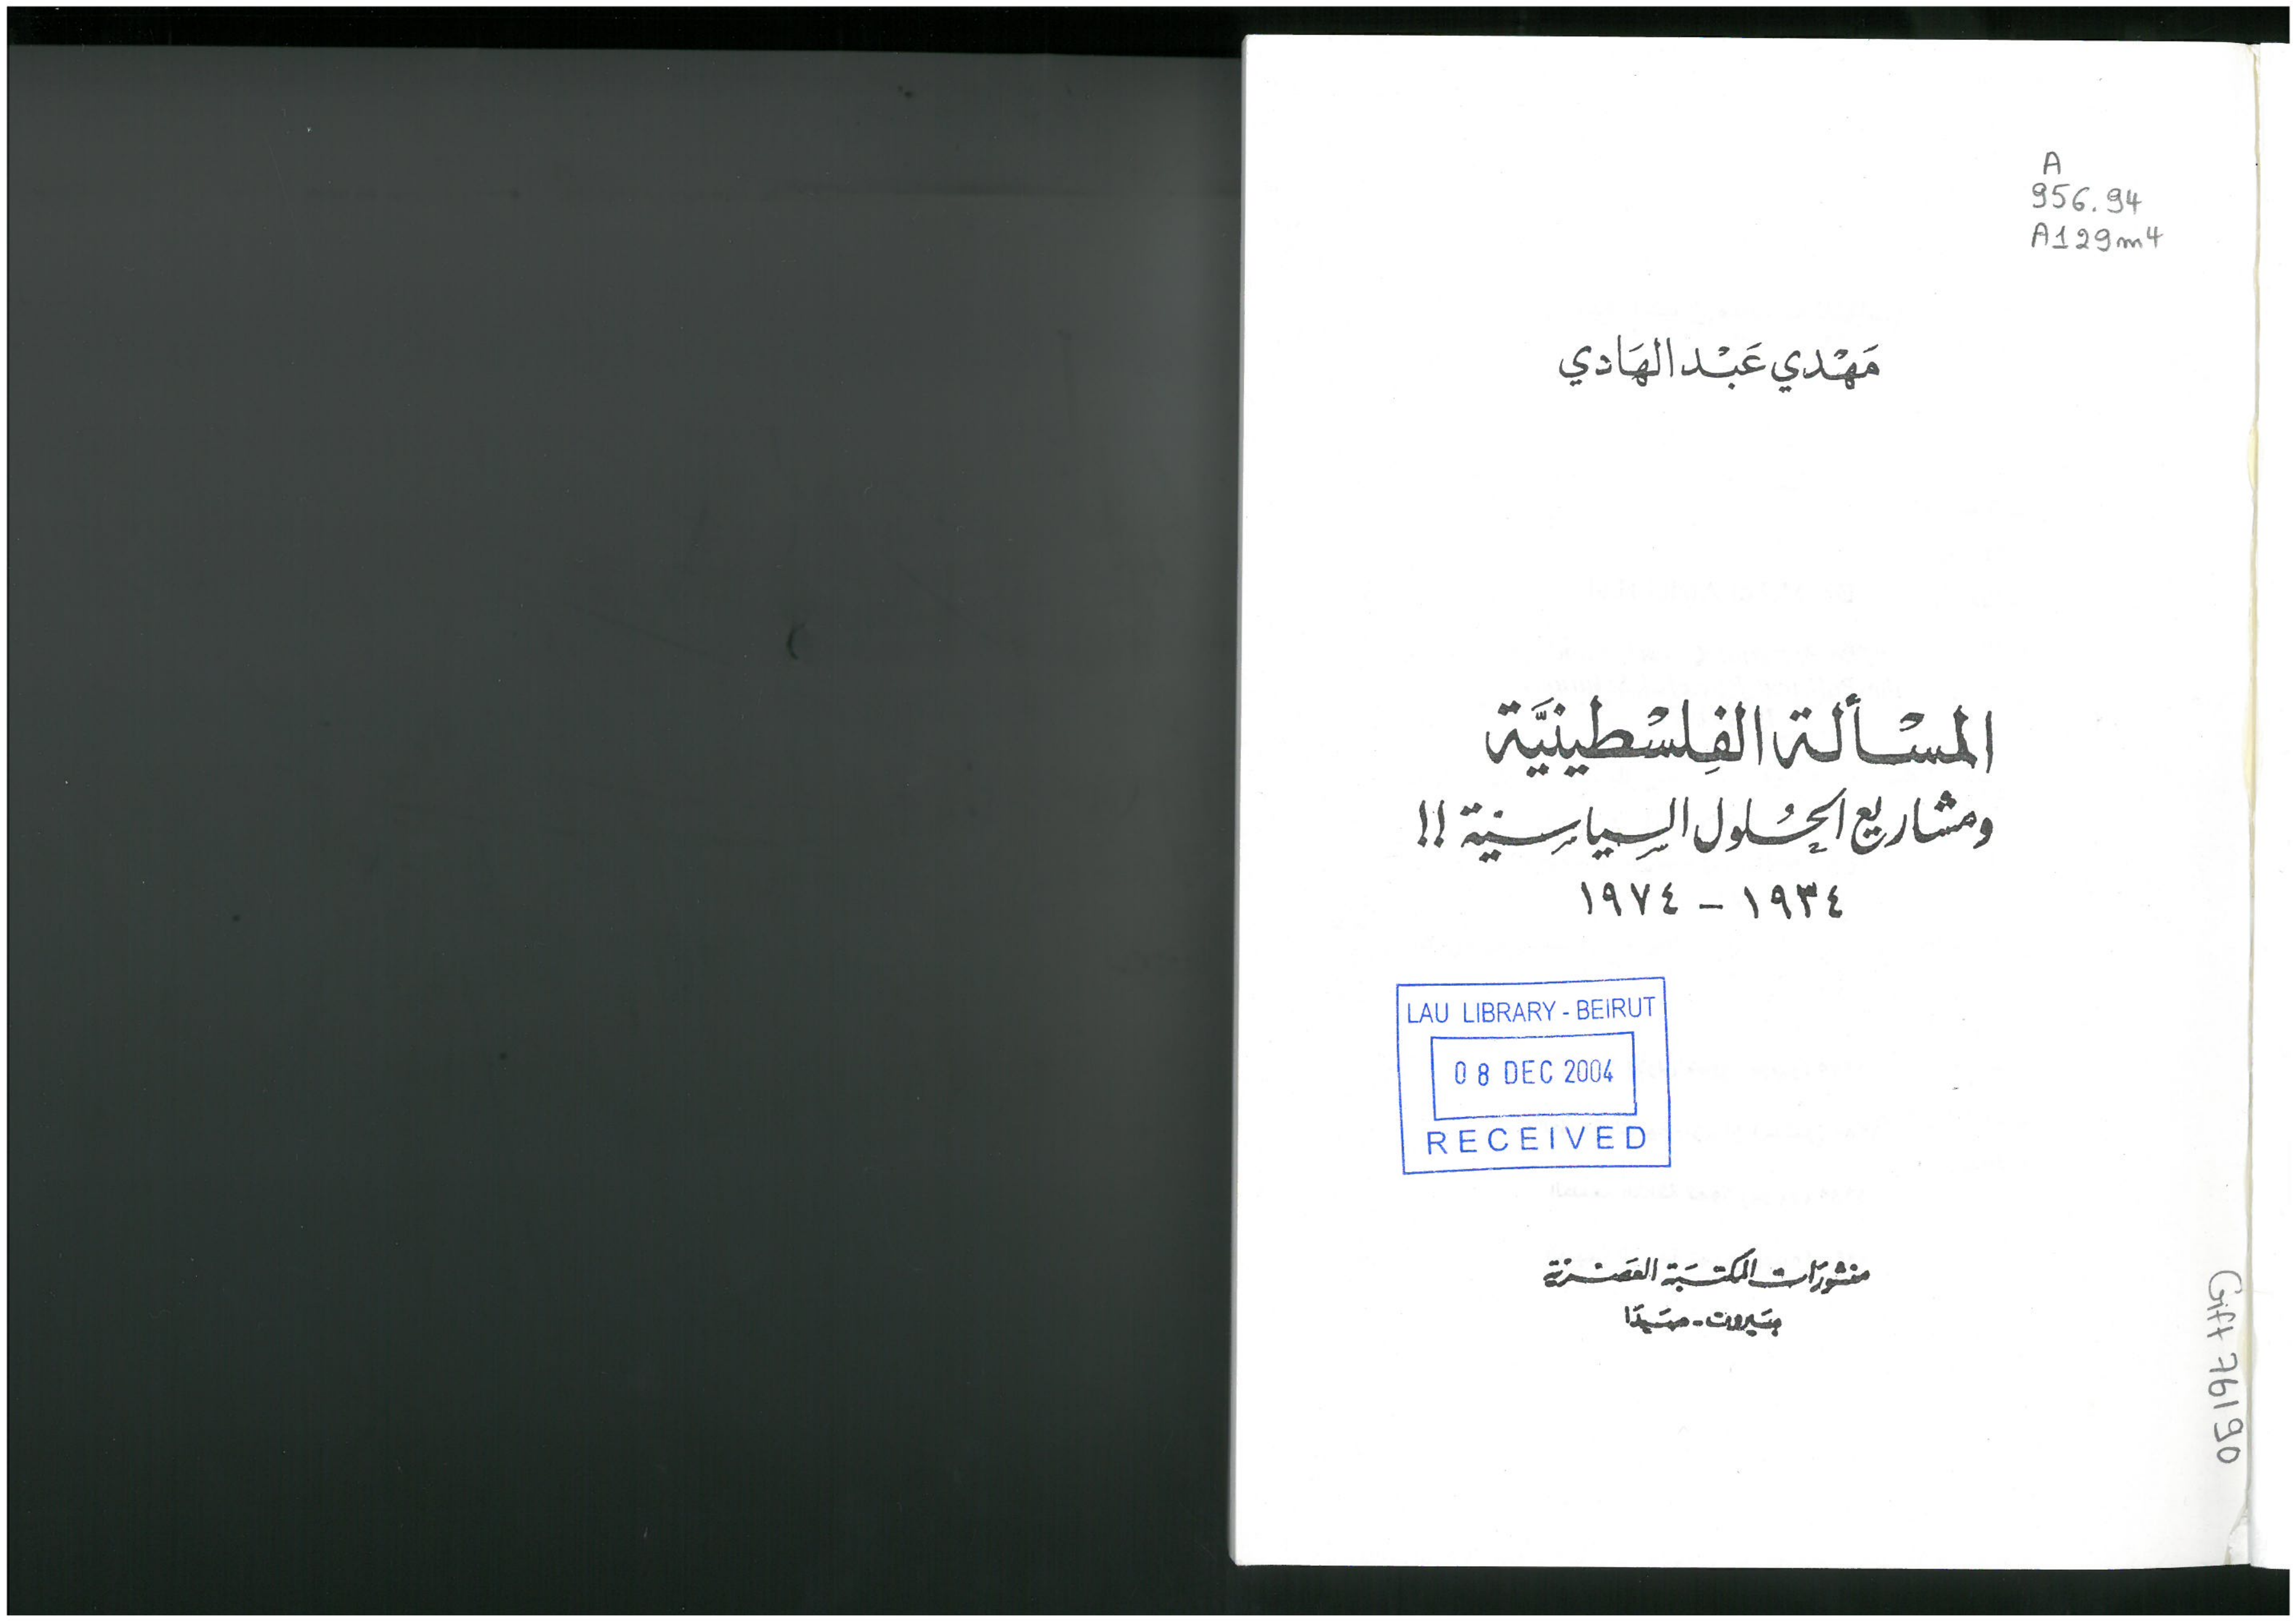 A
956.94
A129m4
مَهْدي عَبْد الهَادي
المسْألة الفِلسْطينيَّة
ومشاريع الحُلول السِياسِية !!
١٩٣٤ - ١٩٧٤
LAU LIBRARY - BEIRUT
08 DEC 2004
RECEIVED
منشورَات المكتبَة العَصْرية
بَيروت - صَيدَا
Gift 76190